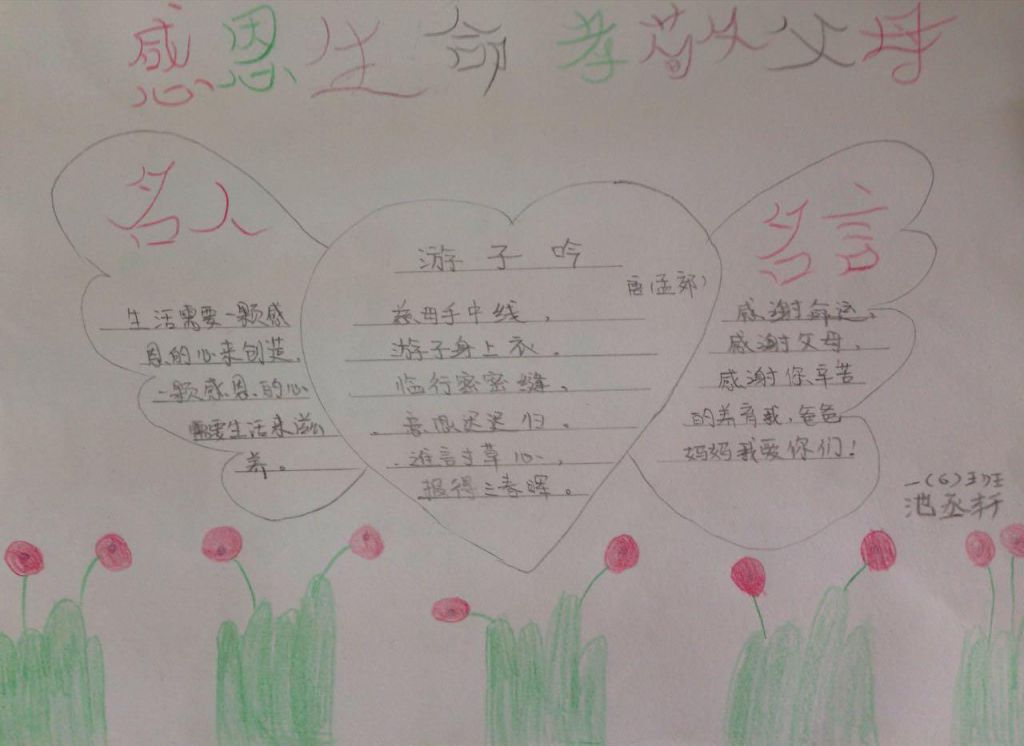 感恩生命 孝敬父母
名人
生活需要一颗感
恩的心来创造,
一颗感恩的心
需要生活来滋
养。
游子吟
唐(孟郊)
慈母手中线,
游子身上衣。
临行密密缝,
意恐迟迟归。
谁言寸草心,
报得三春晖。
名言
感谢命运,
感谢父母,
感谢你辛苦
的养育我,爸爸
妈妈我爱你们!
一(6)班
池丞轩